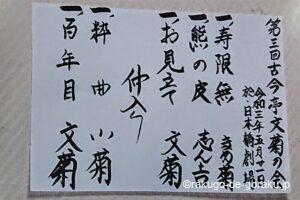 第三回古今亭文菊の会
令和三年五月廿一日
於・日本橋劇場
一 寿限無 菊一
一 熊の皮 志ん吉
一 お見立て 文菊
仲入り
一 粋曲 小菊
一 百年目 文菊
©rakugo-de-goraku.jp